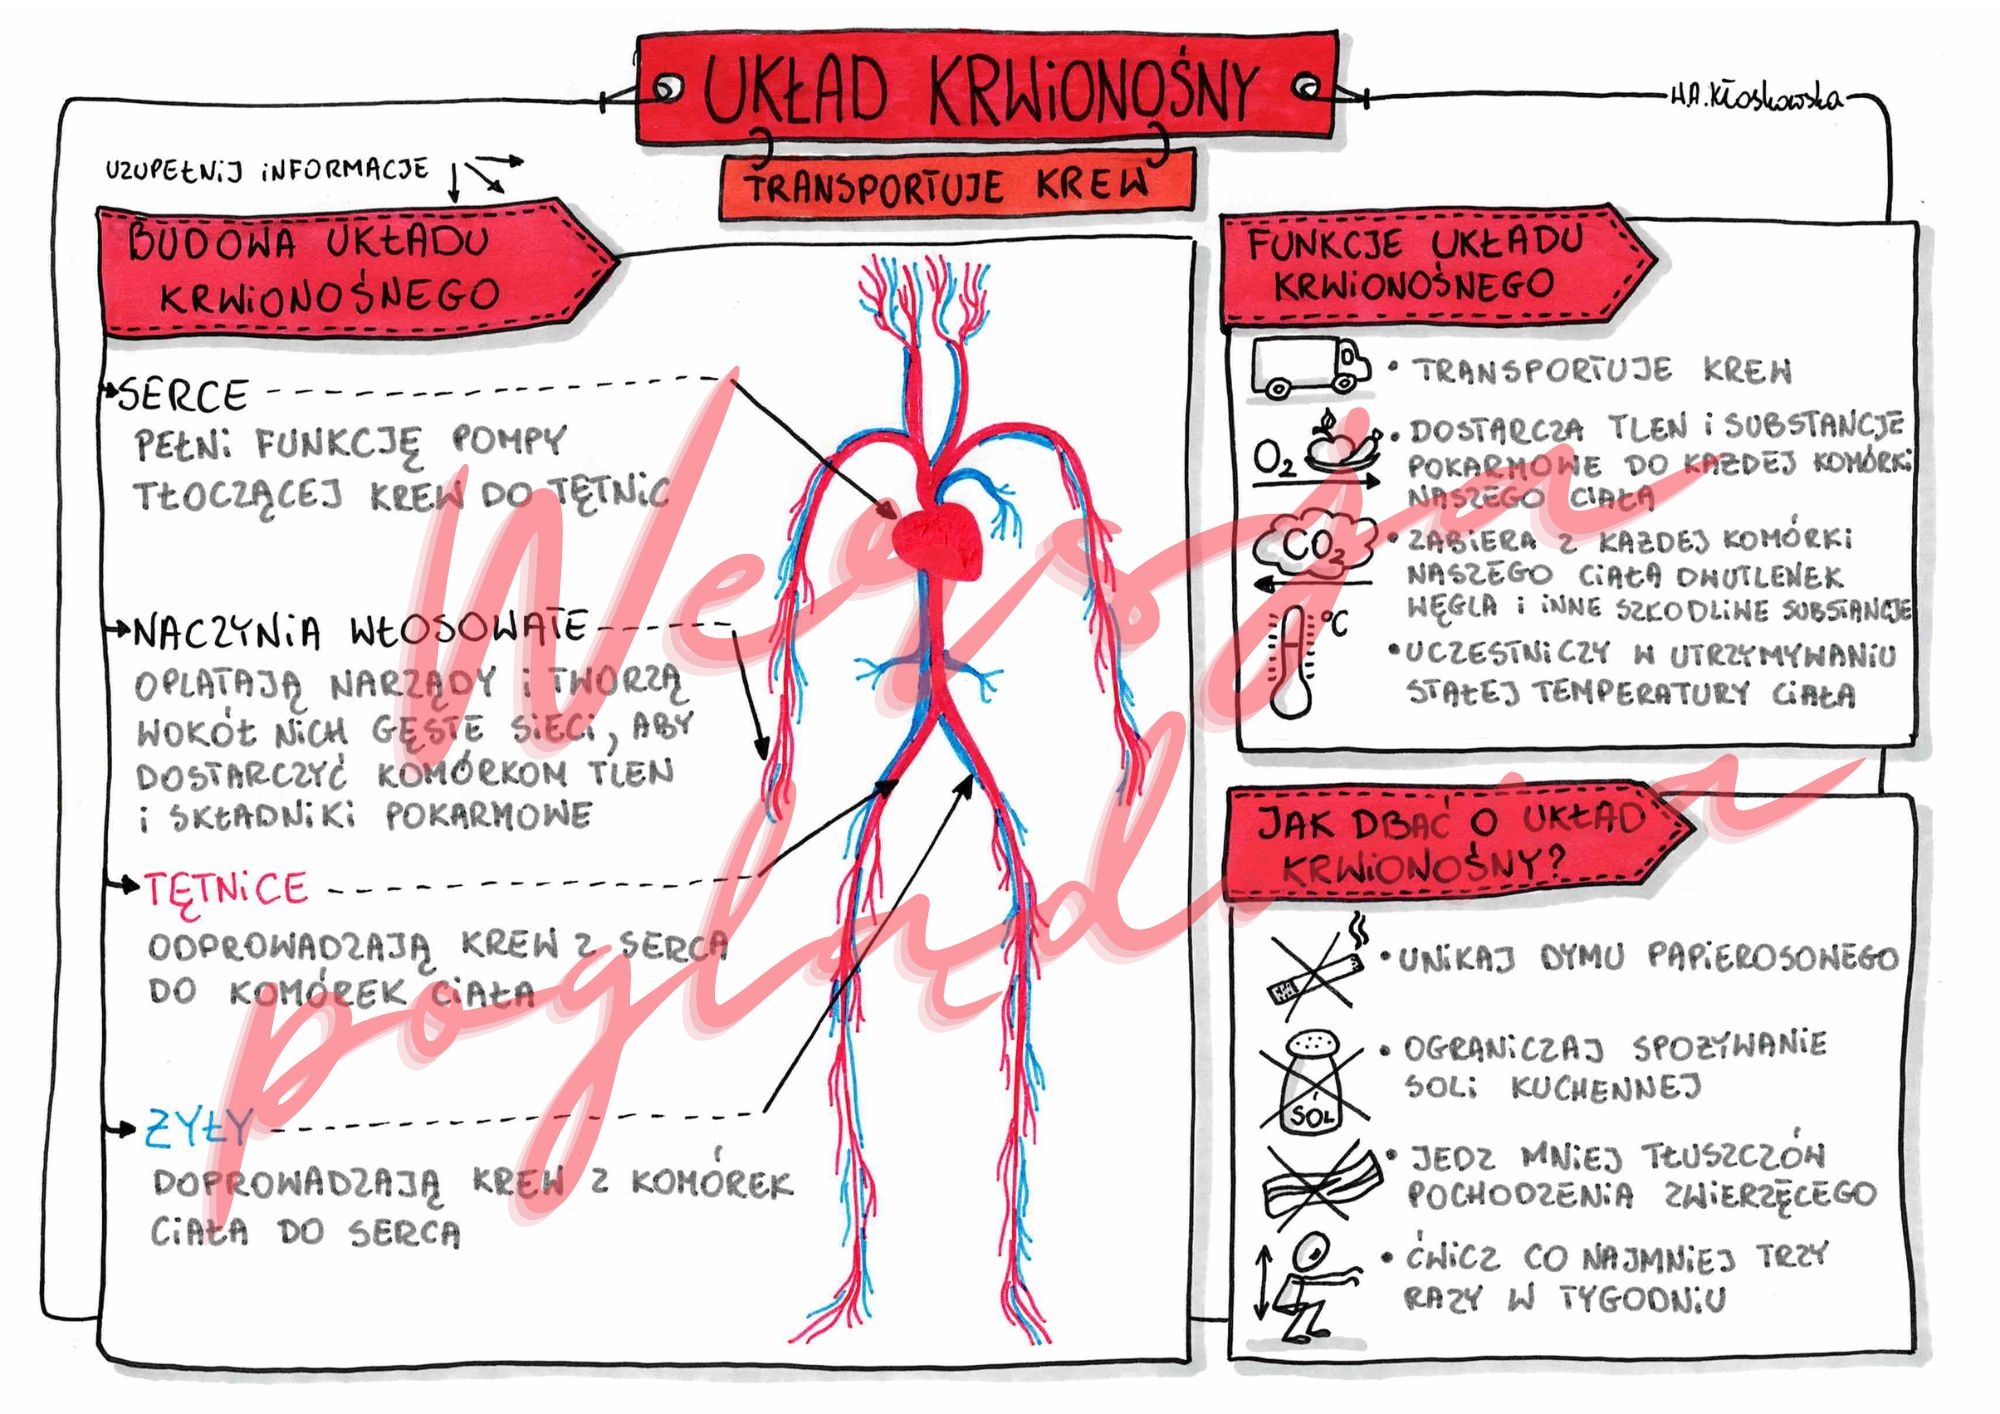 UKŁAD KRWiONOŚNY
H.A.Kłoskowska
TRANSPORTUJE KREW
UZUPEŁNiJ iNFORMACJE
BUDOWA UKŁADU
KRWiONOŚNEGO
SERCE
PEŁNi FUNKCJĘ POMPY
TŁOCZĄCEJ KREW DO TĘTNiC
NACZYNiA WŁOSOWATE
OPLATAJĄ NARZĄDY i TWORZĄ
WOKÓŁ NiCH GĘSTE SiECi, ABY
DOSTARCZYĆ KOMÓRKOM TLEN
i SKŁADNiKi POKARMOWE
TĘTNiCE
ODPROWADZAJĄ KREW Z SERCA
DO KOMÓREK CiAŁA
ŻYŁY
DOPROWADZAJĄ KREW Z KOMÓREK
CiAŁA DO SERCA
FUNKCJE UKŁADU
KRWiONOŚNEGO
• TRANSPORTUJE KREW
O2
• DOSTARCZA TLEN i SUBSTANCJE
POKARMOWE DO KAŻDEJ KOMÓRKi
NASZEGO CIAŁA
CO2
• ZABIERA Z KAŻDEJ KOMÓRKi
NASZEGO CiAŁA DWUTLENEK
WĘGLA i iNNE SZKODLiWE SUBSTANCJE
°C
• UCZESTNiCZY W UTRZYMYWANiU
STAŁEJ TEMPERATURY CiAŁA
JAK DBAĆ O UKŁAD
KRWiONOŚNY?
• UNiKAJ DYMU PAPiEROSOWEGO
• OGRANiCZAJ SPOŻYWANiE
SOLi KUCHENNEJ
SÓL
• JEDZ MNiEJ TŁUSZCZÓW
POCHODZENiA ZWiERZĘCEGO
• ĆWiCZ CO NAJMNiEJ TRZY
RAZY W TYGODNiU
Wersja
poglądowa